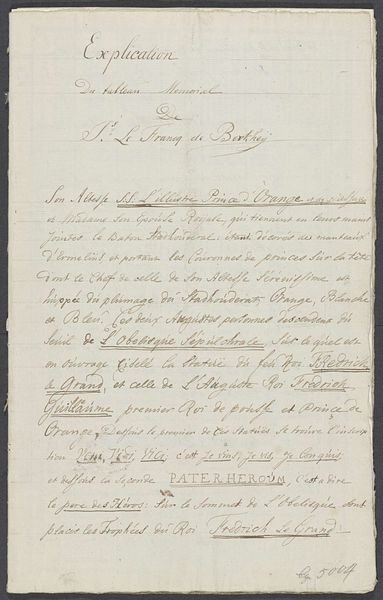 Explication
Du tableau Memorial
De
J. Le Francq de Berkheij
Son Altesse S.S. L'illustre Prince d'Orange
et Madame son Epouse Royale, qui tiennent en leurs mains
jointes le Baton Stadhouderal: etant décorés de manteaux
d'Ermelins et portant les Couronnes de princes sur la tête
dont le Chef de celle de Son Altesse Sérénissime est
du plumage du Stadhouderat, Orange, Blanche
et Bleu, Ces deux Augustes personnes descendent du
Seuil de L'Obelisque Sépulchrale, Sur le quel est
en ouvrage Cibelé la Statüe du feu Roi FRedrich
le Grand, et celle de L'Auguste Roi Fredrich
Guillaume, premier Roi de prusse et Prince de
Orange, Dessus le premier de Ces Statües se trouve l'inscrip
tion Veni, Vidi, Vici; c'est Je vins, je vis, je Conquis;
et dessus la Seconde PATER HEROUM C'est a dire
le pere des Héros: Sur le Sommet de L'Obelisque sont
placés les Trophées du Roi Fredrich Le Grand!
5004